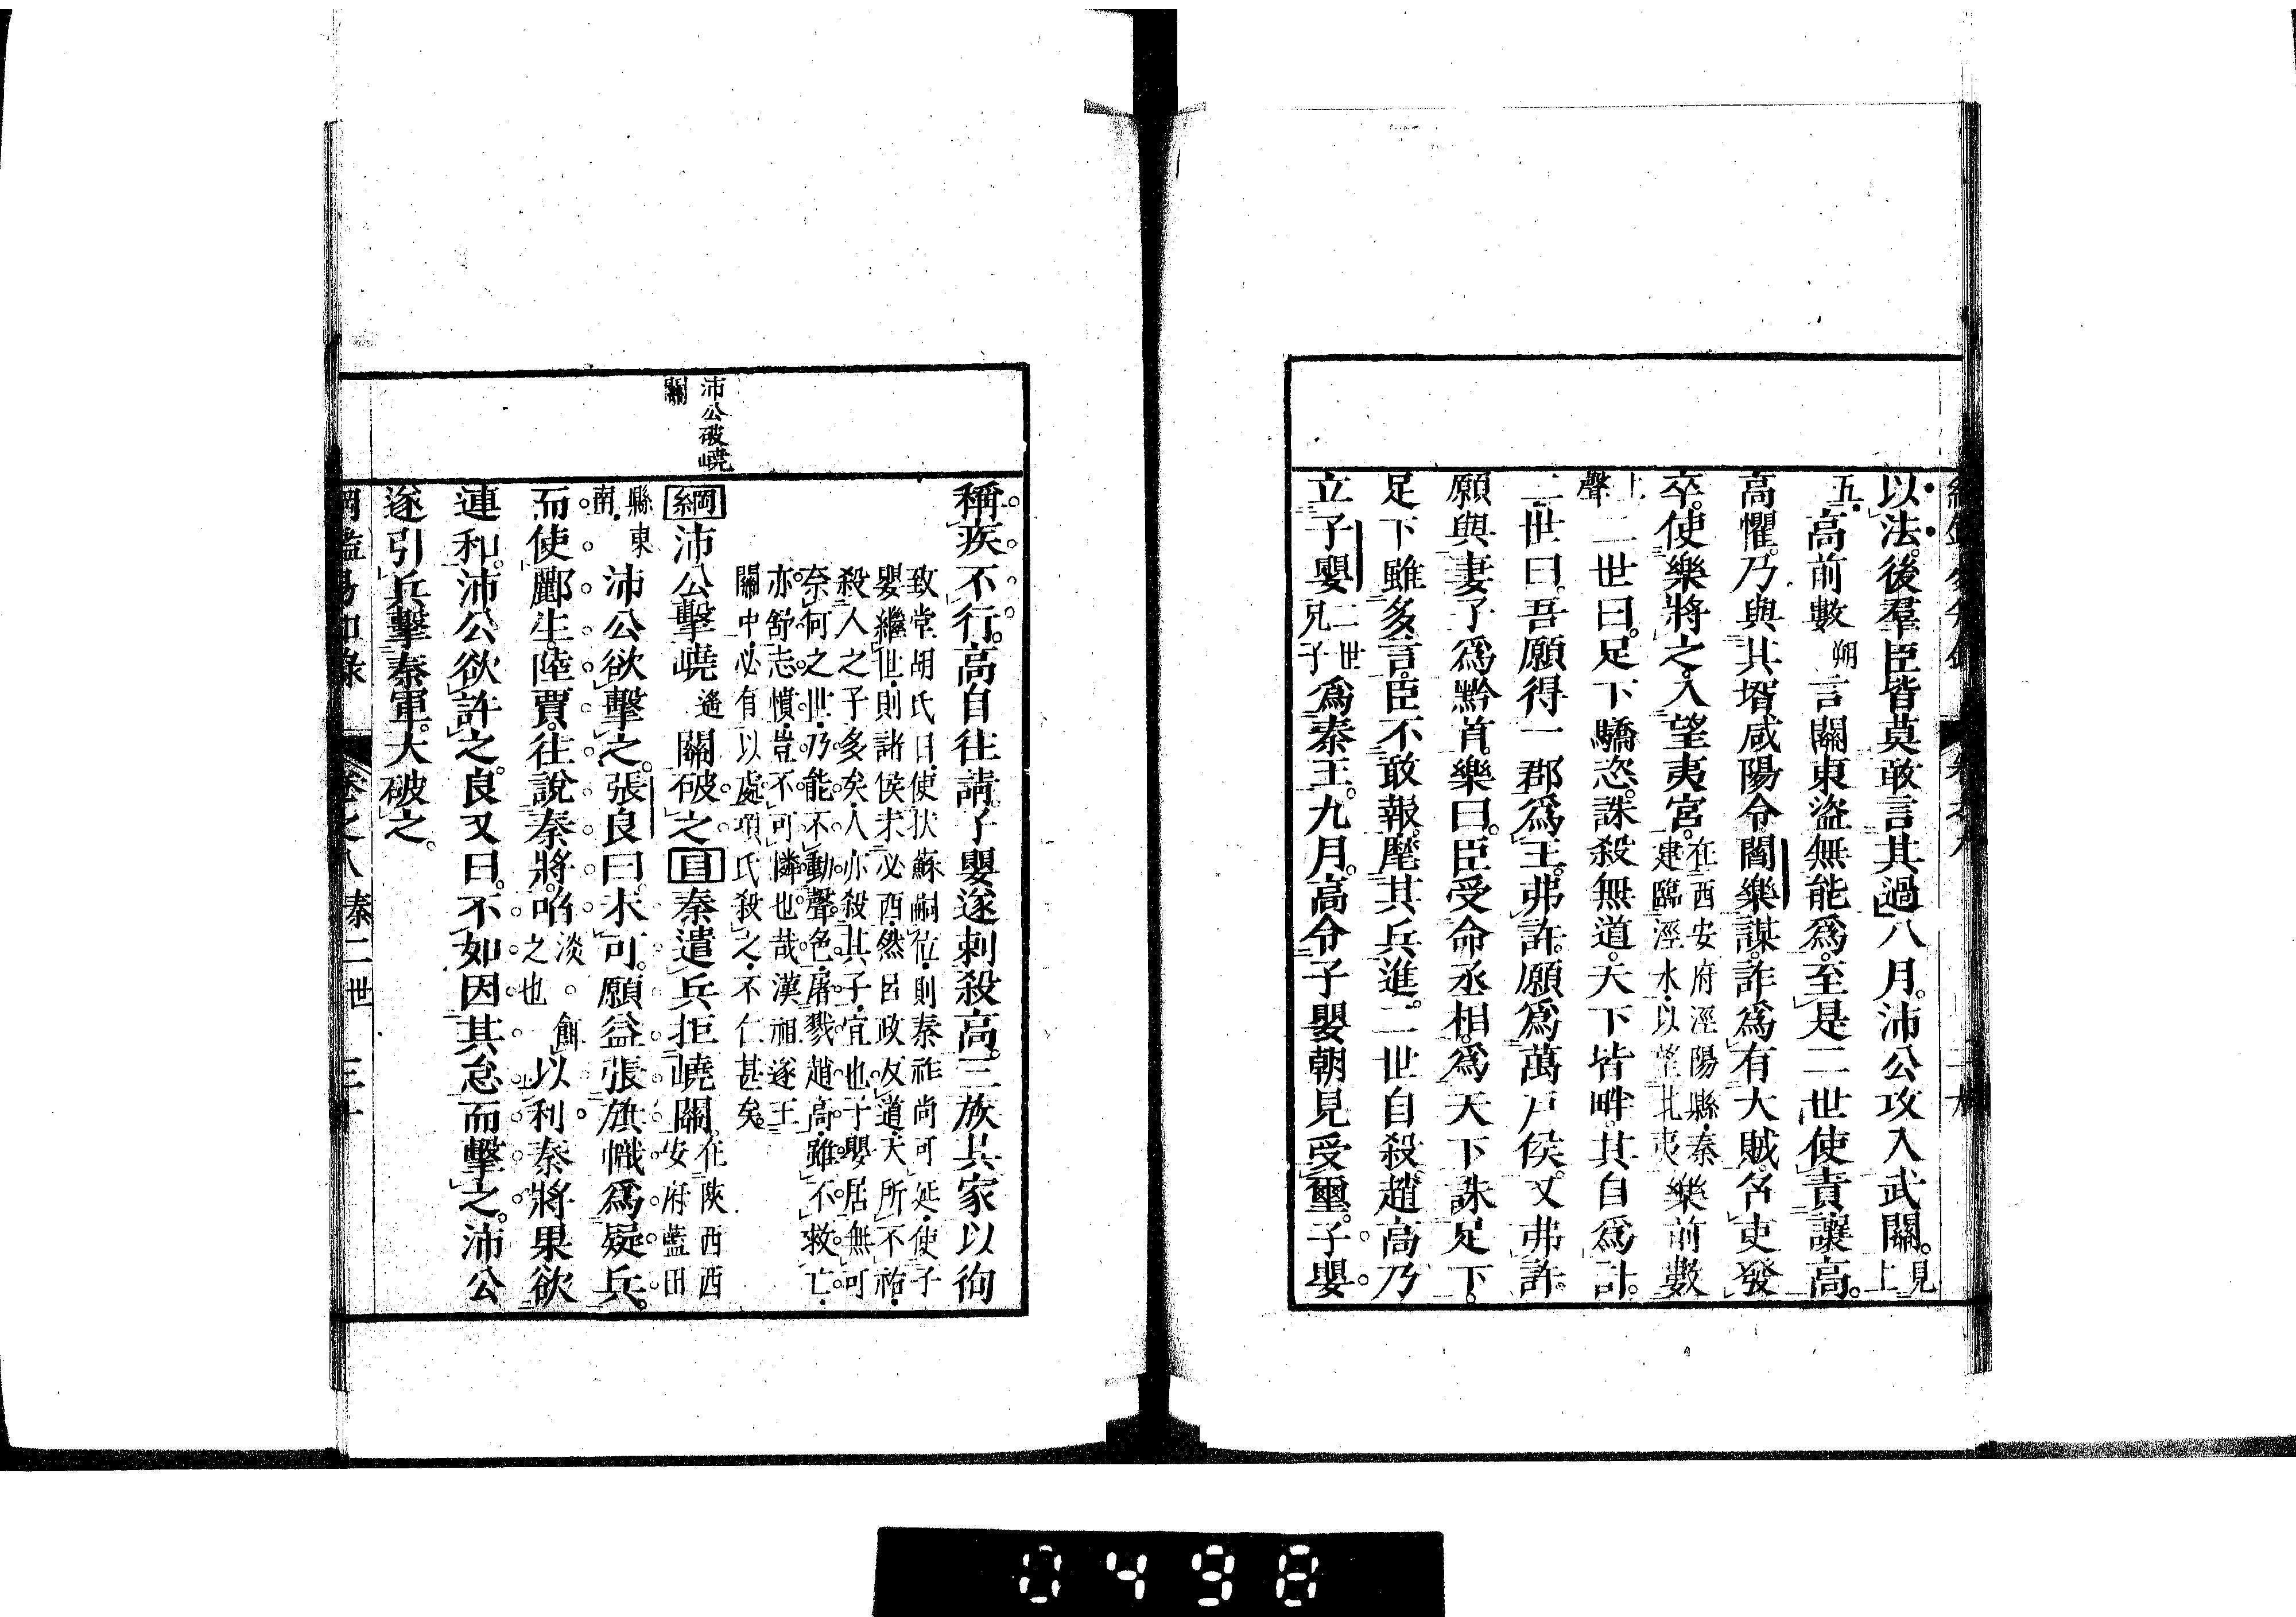 以法。後羣臣皆莫敢言其過。八月。沛公攻入武關。見上
五.高前數朔言關東盜無能爲。至是二世使責讓高。
高懼。乃與其壻咸陽令閻樂謀。詐爲有大賊。召吏發
卒。使樂將之。入望夷宮。在西安府涇陽縣.秦建臨涇水.以望北夷樂前數
上聲二世曰。足下驕恣。誅殺無道。天下皆畔。其自爲計。
二世曰。吾願得一郡爲王。弗許。願爲萬戶侯。又弗許。
願與妻子爲黔首。樂曰。臣受命丞相。爲天下誅足下。
足下雖多言。臣不敢報。麾其兵進。二世自殺。趙高乃
立子嬰二世兄子爲秦王。九月。高令子嬰朝見受璽。子嬰
稱疾不行。高自往請。子嬰遂刺殺高。三族其家以徇
致堂胡氏曰.使扶蘇嗣位.則秦祚尚可延.使子
嬰繼世.則諸侯未必西.然呂政反道.天所不祐.
殺人之子多矣.人亦殺其子.宜也.子嬰居無可
奈何之世.乃能不動聲色.屠戮趙高.雖不救亡.
亦舒志憤.豈不可憐也哉.漢祖遂王
關中.必有以處.項氏殺之.不仁甚矣.
沛公破嶢
關
綱沛公擊嶢遙關破之目秦遣兵拒嶢關。在陝西西安府藍田
縣東南.沛公欲擊之。張良曰。未可。願益張旗幟爲疑兵。
而使酈生。陸賈。往說秦將。啗淡。餌之也以利。秦將果欲
連和。沛公欲許之。良又曰。不如因其怠而擊之。沛公
遂引兵擊秦軍。大破之。
綱鑑易知錄 卷之八 秦二世 三十